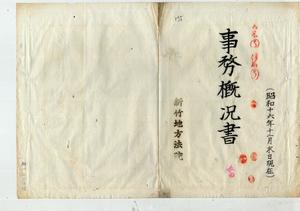 (昭和十六年十二月末日現在)
事務概況書
新竹地方法院